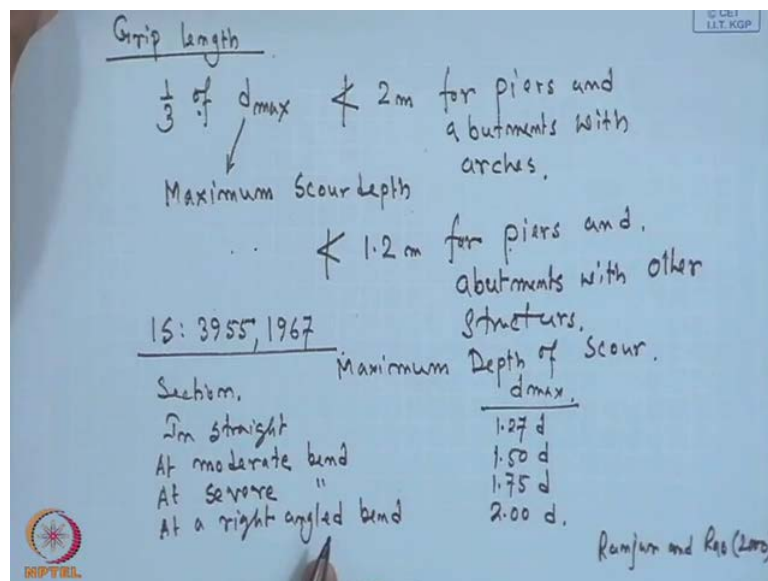 © CET
I.I.T. KGP
Grip length
1/3 of dmax ≮ 2m for piers and
abutments with
arches.
Maximum Scour depth
≮ 1.2 m for piers and.
abutments with other
structurs.
IS: 3955, 1967
Maximum Depth of Scour.
Section.
dmax.
In straight 1.27 d
At moderate bend 1.50 d
At severe " 1.75 d
At a right angled bend 2.00 d.
Ranjan and Rao (2000)
NPTEL